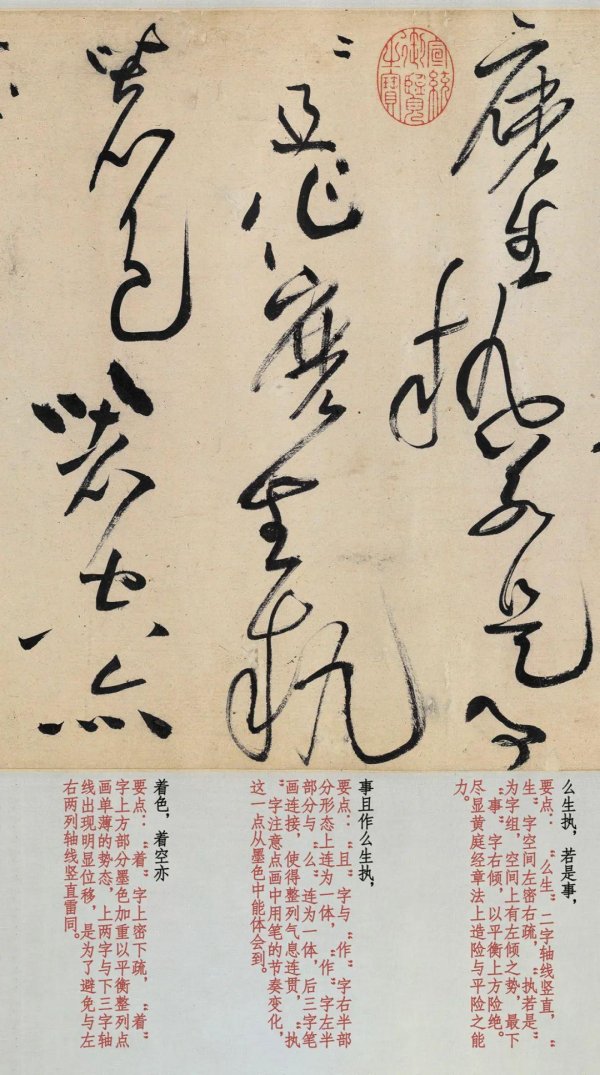 麼生執若是事
宣統
御覽
之寶
〻且作麼生執
著色著空亦
么生执，若是事，
要点：“么生”二字轴线竖直，“
生”字空间左密右疏，“执若是”
为字组，空间上有左倾之势，最下
“事”字右倾，以平衡上方险绝。
尽显黄庭经章法上造险与平险之能
力。
事且作么生执，
要点：“且”字与“作”字右半部
分形态上连为一体，“作”字左半
部分与“么”连为一体，后三字笔
画连接，使得整列气息连贯，“执
”字注意点画中用笔的节奏变化，
这一点从墨色中能体会到。
着色，着空亦
要点：“着”字上密下疏，“着”
字上方部分墨色加重以平衡整列点
画单薄的势态，上两字与下三字轴
线出现明显位移，是为了避免与左
右两列轴线竖直雷同。